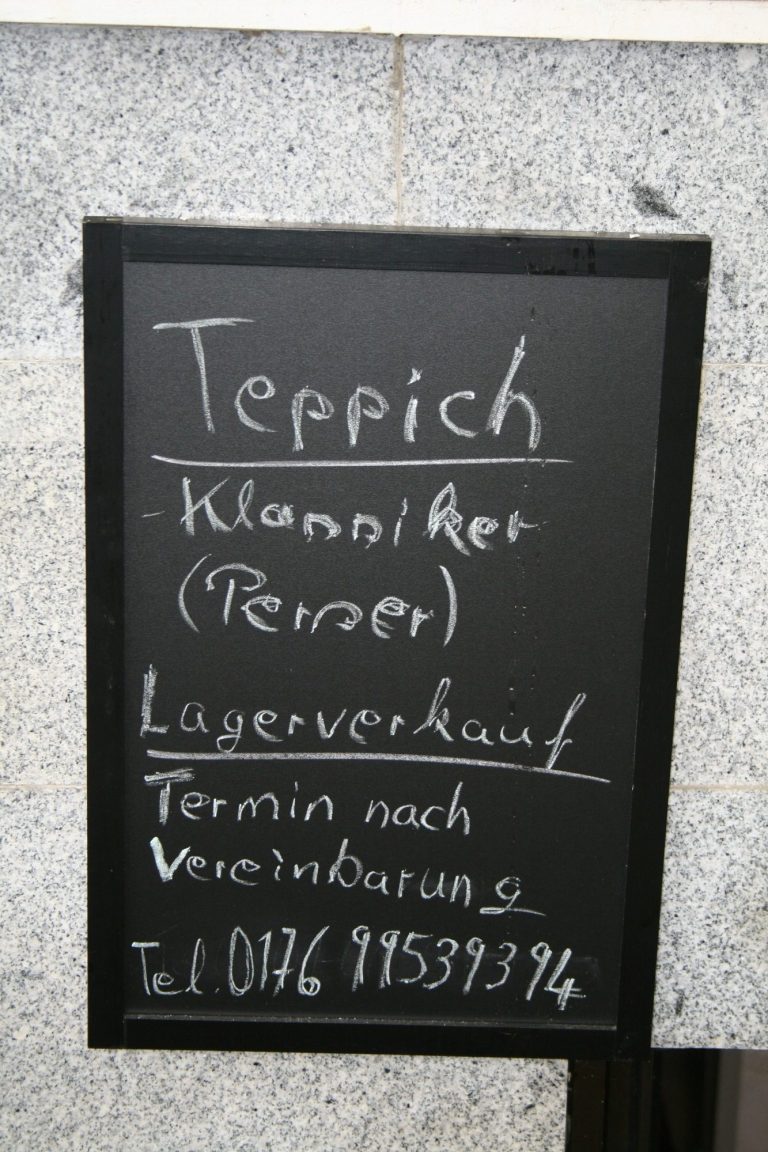 Teppich
-Klassiker
(Perser)
Lagerverkauf
Termin nach
Vereinbarung
Tel. 0176 99539394